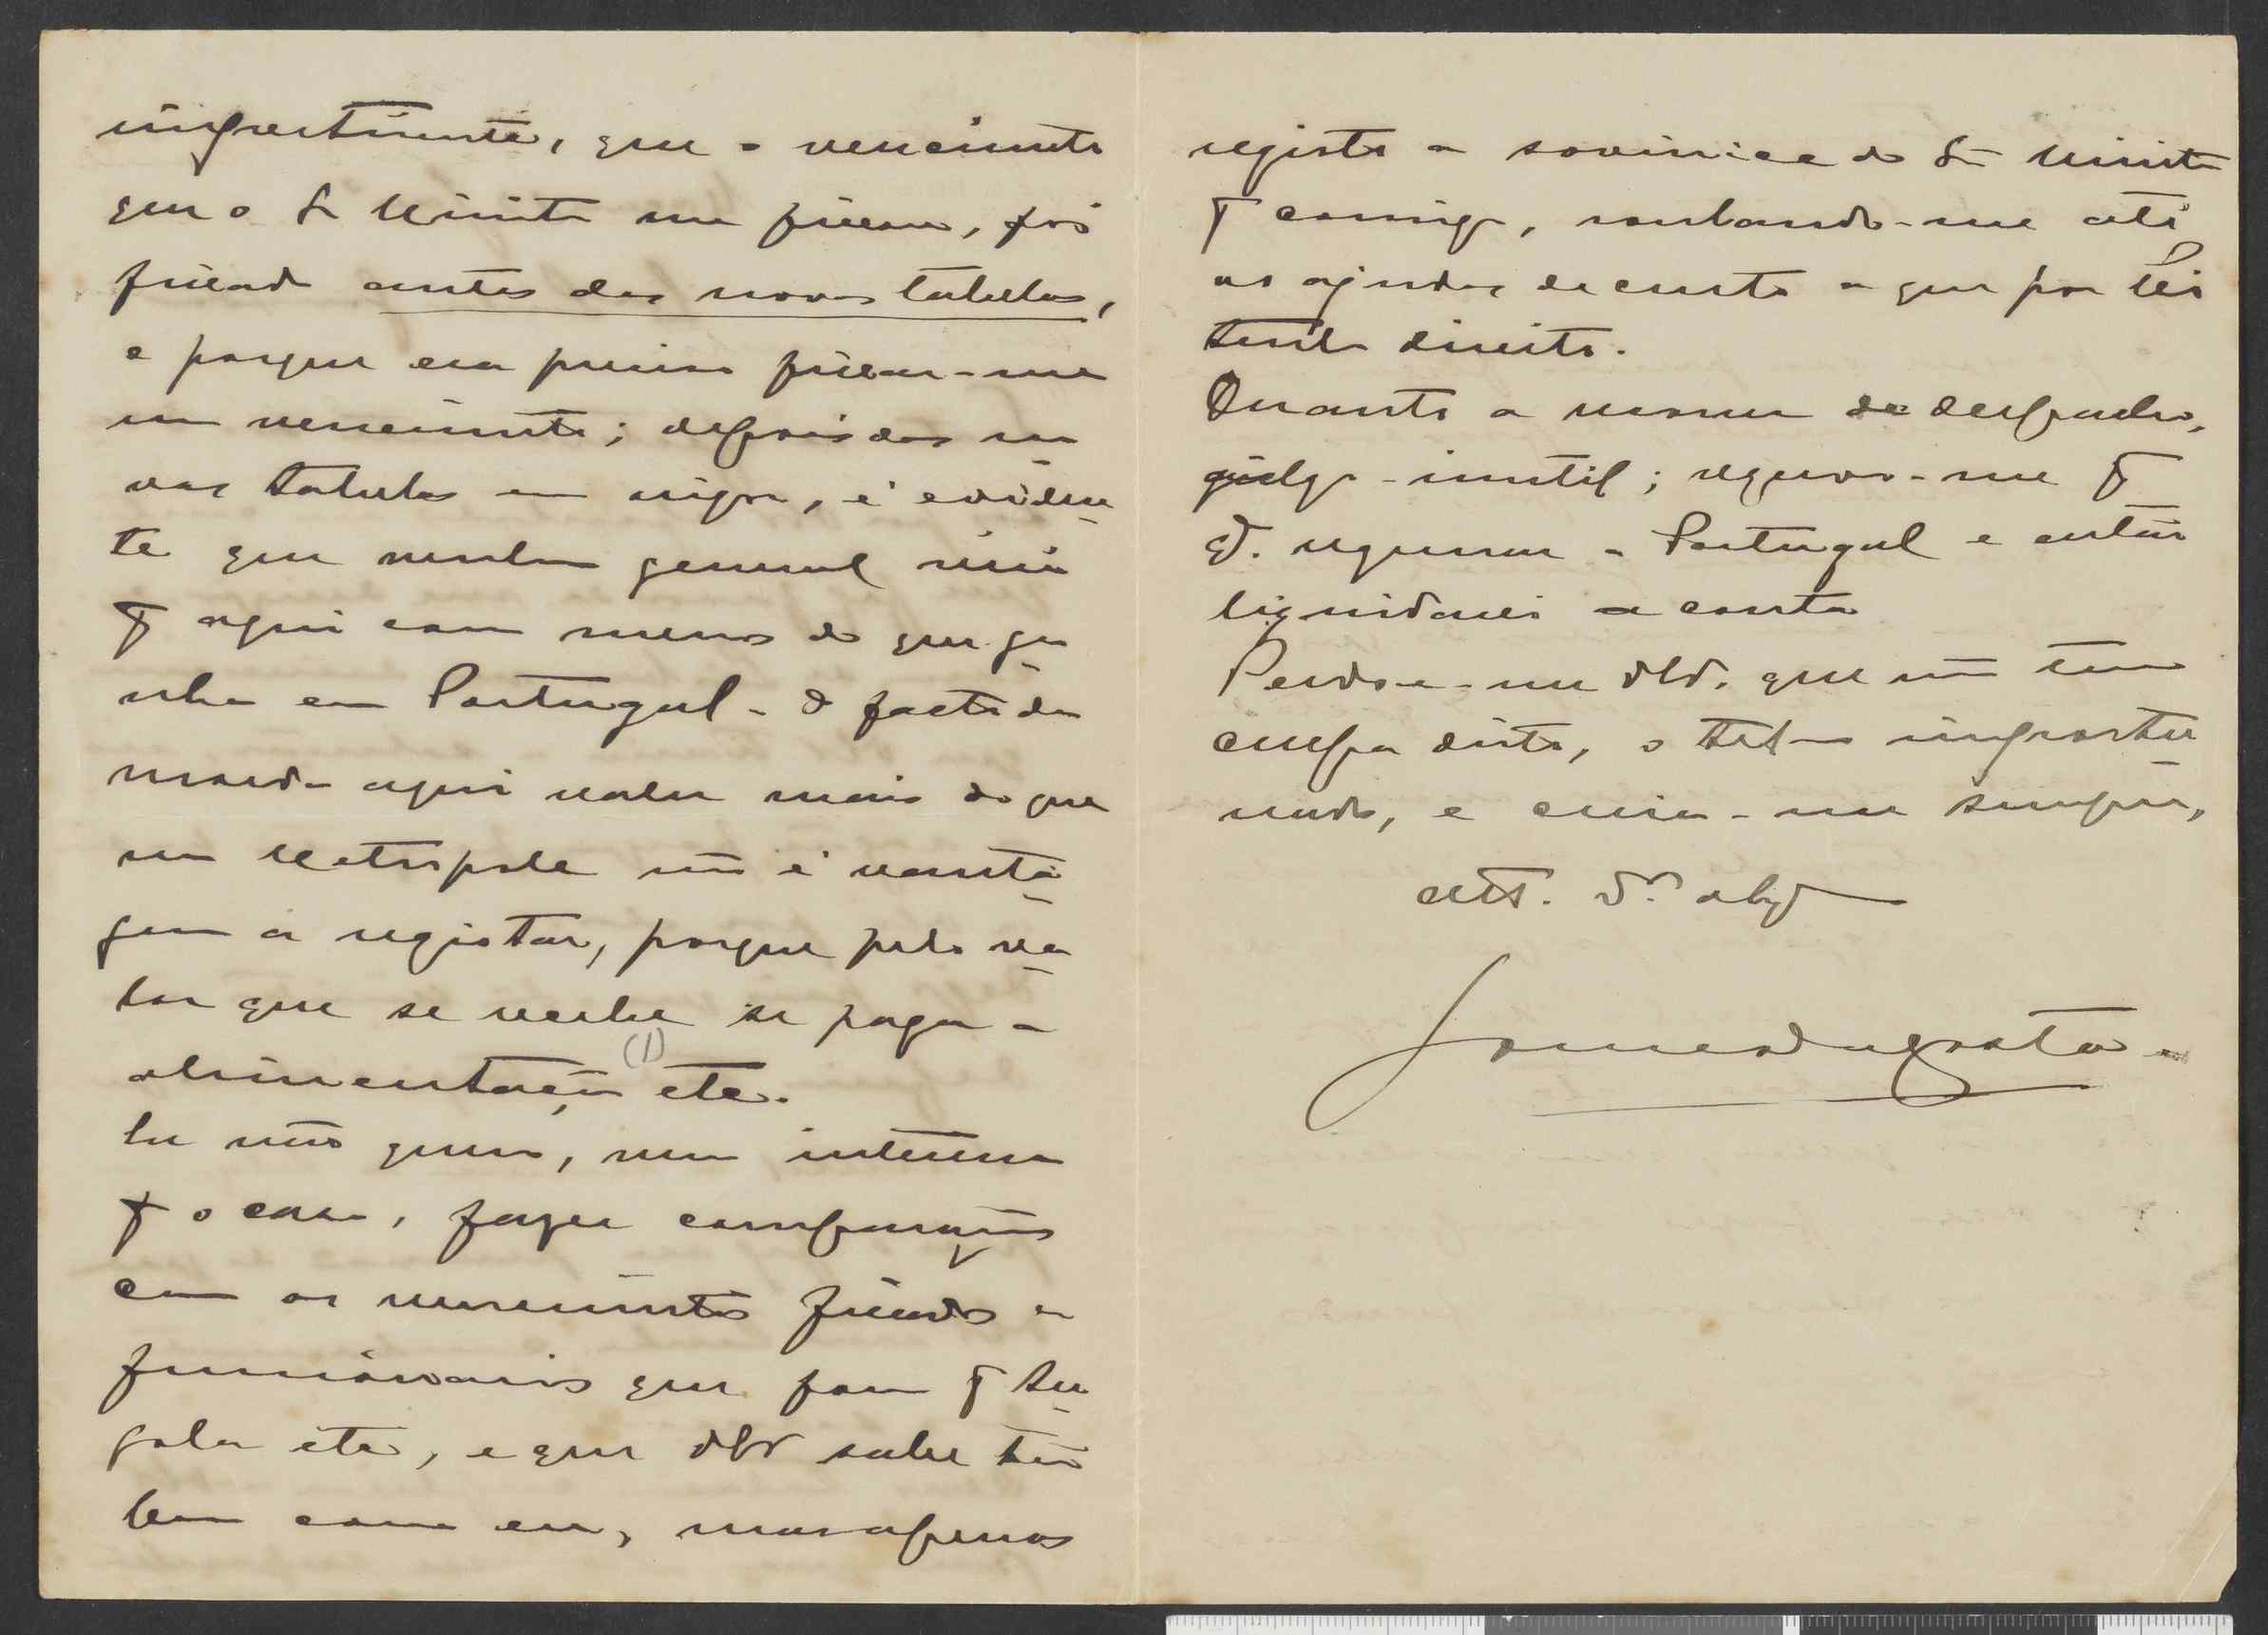 impertinente, que o vencimento
que o Sr Ministro me fixou, foi
fixado antes das novas tabelas,
e porque era preciso fixar-me
um vencimento; depois das no-
vas tabelas em vigor, é eviden-
te que nenhum general viria
pª aqui com menos do que ga-
nha em Portugal - O facto da
moeda aqui valer mais do que
na Metropole não é vanta-
gem a registar, porque pelo va-
lor que se recebe se paga a
alimentação (1) etc.
Eu não quero, nem interessa
pª o caso, fazer comparações
com os vencimentos fixados a
funcionarios que foram pª An-
gola etc, e que V. sabe tão
bem como eu, mas apenas
registo a sovinice do Sr Ministro
pª comigo, roubando-me até
as ajudas de custo a que por lei
tenho direito.
Quanto a mover do despacho,
julgo-o inutil; reservo-me pª
qdo. regressar a Portugal e então
liquidarei a conta
Perdoe-me V., que não tem
culpa disto, o tel-o importu-
nado, e creia-me sempre,
att. Vr. obgº
Gomesdacosta